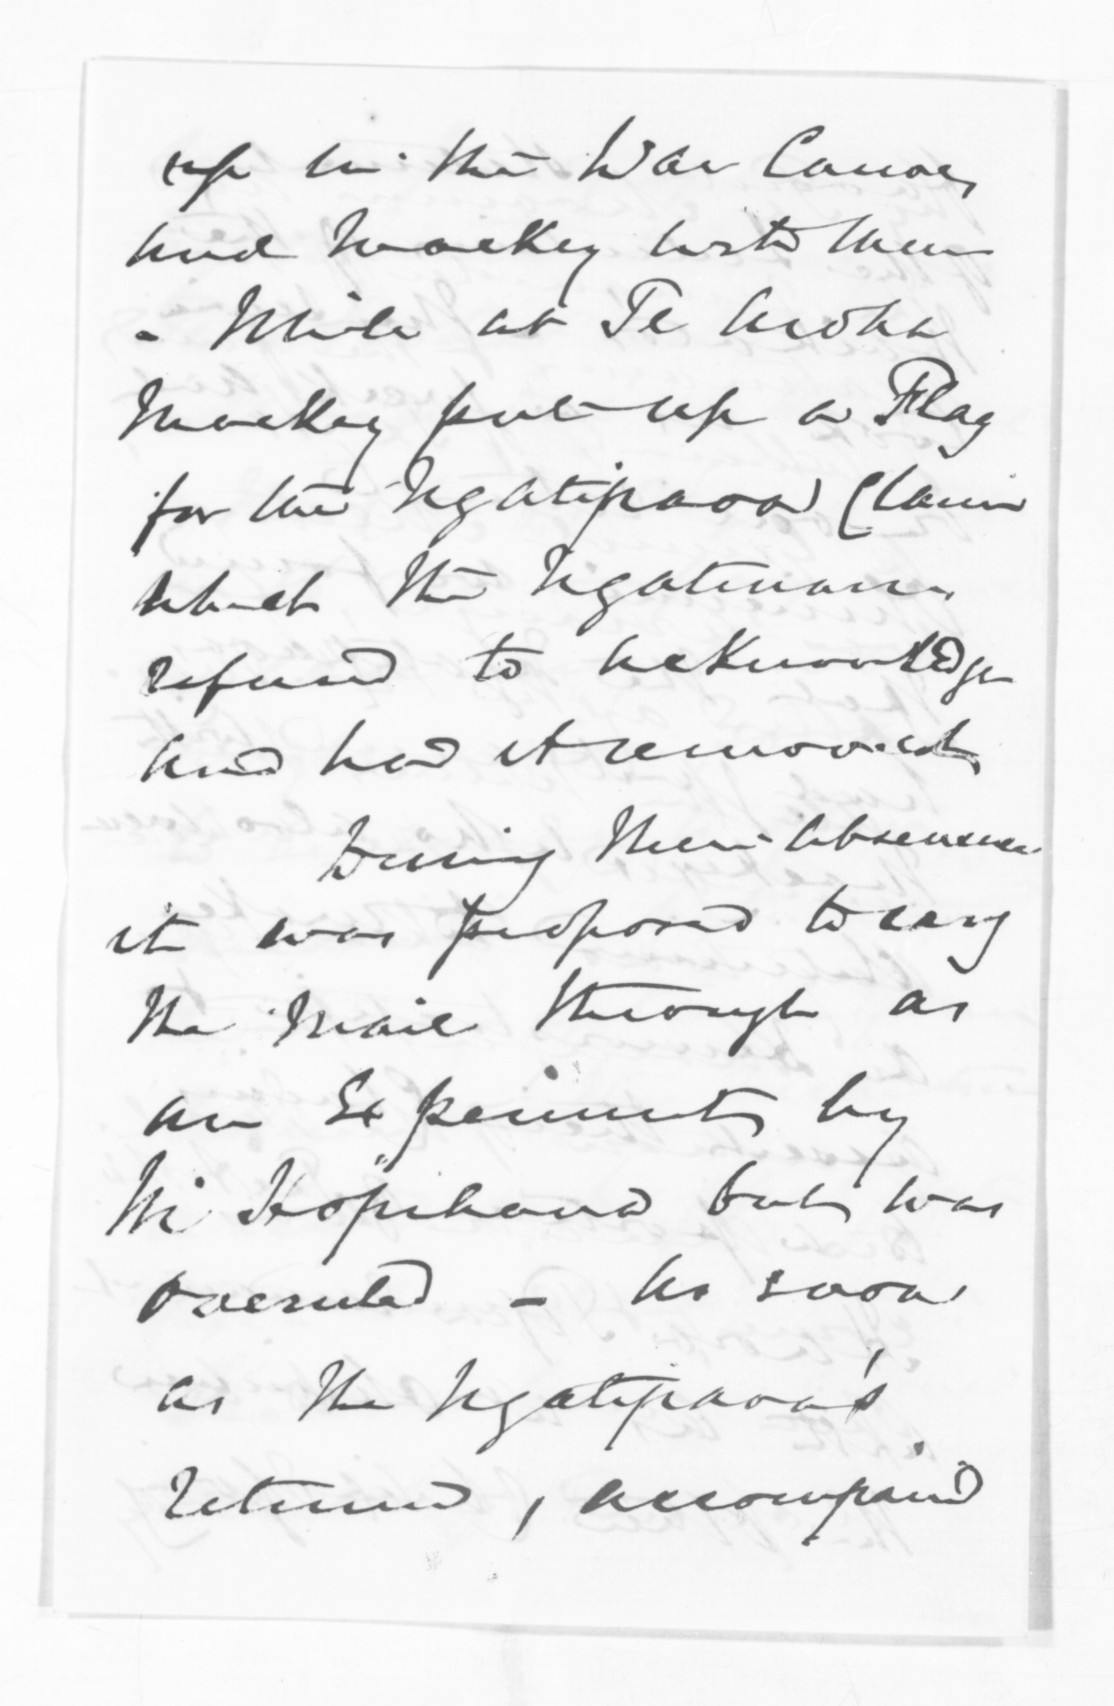 up in the War Canoe,
and Mackey with them
- While at Te Aroha
Mackey put up a Flag
for the Ngatipaoa Claim
which the Ngatimaru
refused to acknowledge
and had it removed,
During their absence
it was proposed to carry
the Mail through as
an Experiment, by
Wi Kopihana but was
overruled - As soon
as the Ngatipaoa's
returned, accompanied